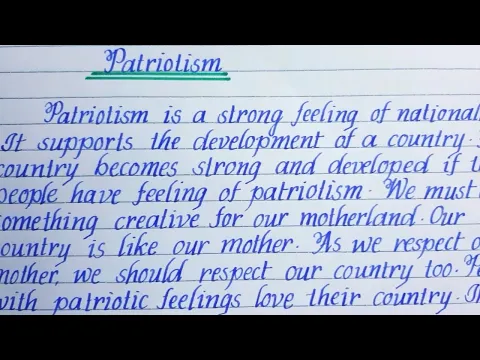 Patriotism
Patriotism is a strong feeling of national
It supports the development of a country.
country becomes strong and developed if
people have feeling of patriotism. We must
omething creative for our motherland. Our
ountry is like our mother. As we respect
mother, we should respect our country too.
with patriotic feelings love their country.